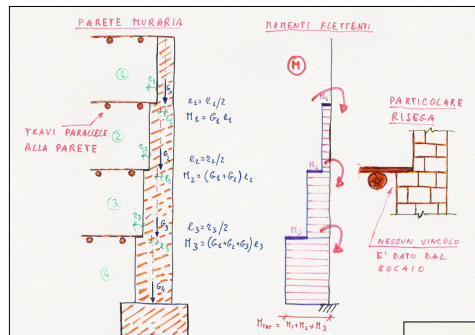 PARETE MURARIA
MOMENTI FLETTENTI
M
1
2
3
4
TRAVI PARALLELE
ALLA PARETE
e1 = r1/2
M1 = G1 e1
e2 = r2/2
M2 = (G1+G2) e2
e3 = r3/2
M3 = (G1+G2+G3) e3
G3
G4
M1
M2
M3
MTOT = M1+M2+M3
PARTICOLARE
RISEGA
NESSUN VINCOLO
E' DATO DAL
SOLAIO